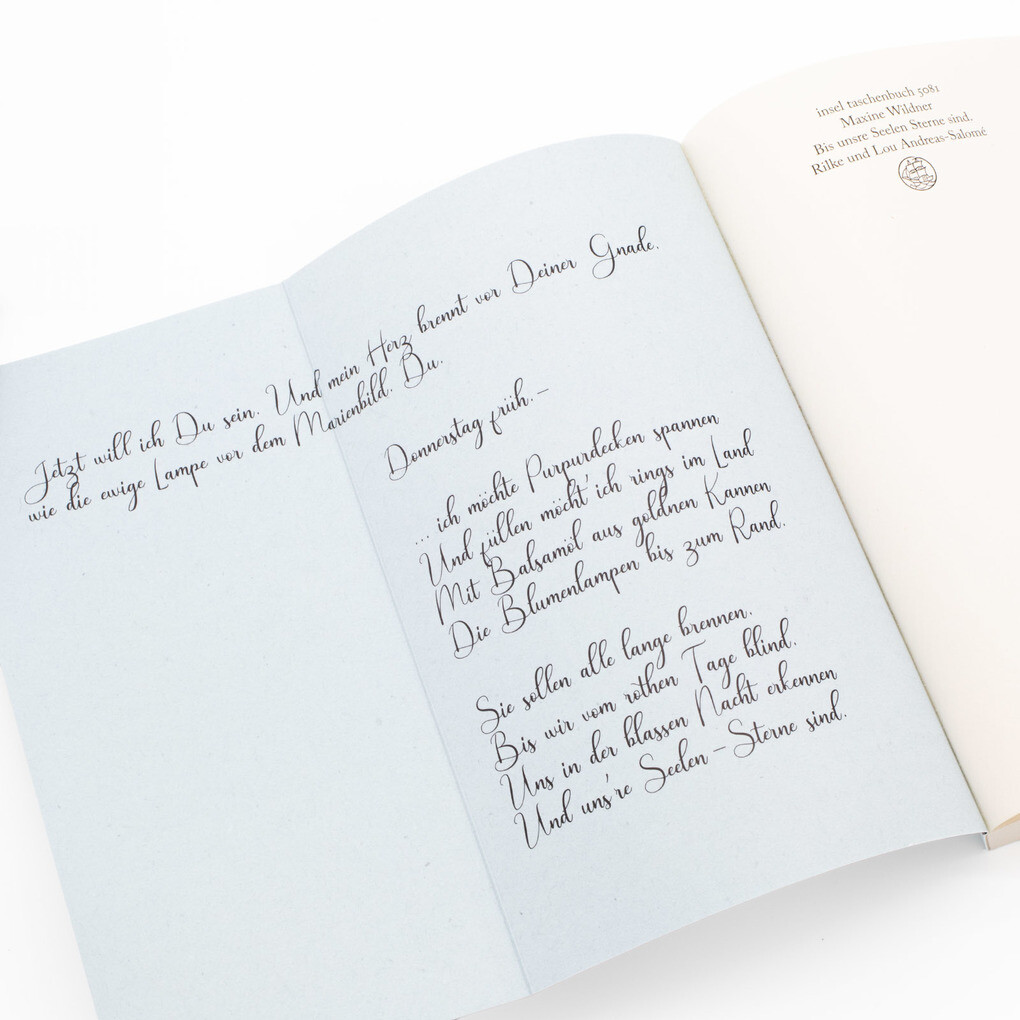 Jetzt will ich Du sein. Und mein Herz brennt vor Deiner Gnade,
wie die ewige Lampe vor dem Marienbild. Du.
Donnerstag früh.–
... ich möchte Purpurdecken spannen
Und füllen möcht' ich rings im Land
Mit Balsamöl aus goldnen Kannen
Die Blumenlampen bis zum Rand.
Sie sollen alle lange brennen,
Bis wir vom rothen Tage blind,
Uns in der blassen Nacht erkennen
Und uns're Seelen–Sterne sind.
insel taschenbuch 5081
Maxine Wildner
Bis unsre Seelen Sterne sind.
Rilke und Lou Andreas-Salomé